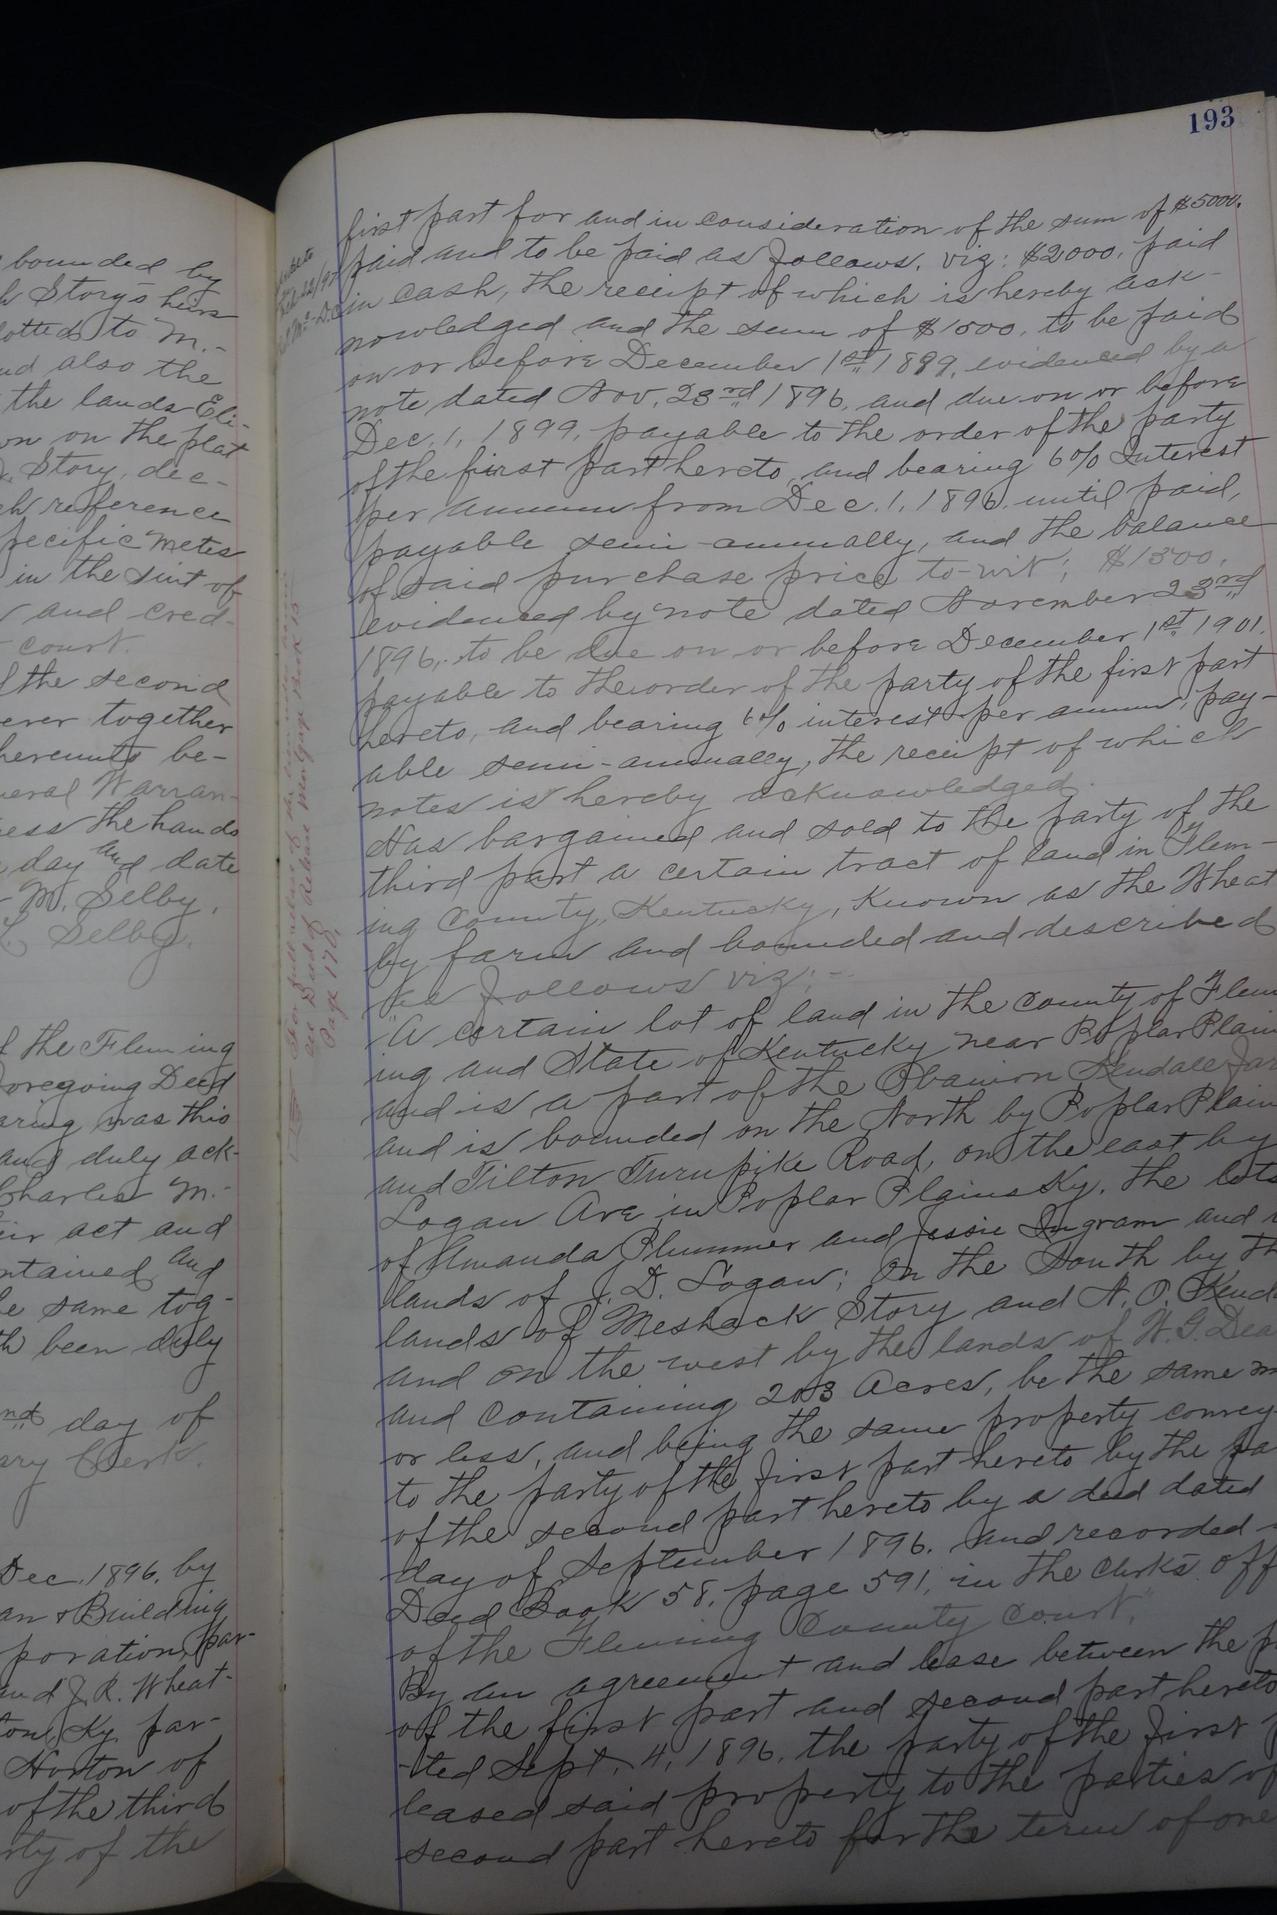 bounded by
Story's heirs
lotted to M.-
and also the
the lands Eli-
on on the plat
Story, dec-
ch reference
pecific metes
in the suit of
and cred-
court.
f the second
ever together
hereunto be-
neral Warran-
ness the hands
day and date
M. Selby.
Selby.
f the Fleming
foregoing Deed
aring was this
and duly ack-
Charles M.-
eir act and
ntained and
he same tog-
th been duly
nd day of
ary Clerk.
Dec. 1896, by
an & Building
poration, par-
and J. R. Wheat-
ton, Ky. par-
Horton of
of the third
rty of the
193
first part for and in consideration of the sum of $5000.
paid and to be paid as follows, viz: $2000. paid
in cash, the receipt of which is hereby ack-
nowledged and the sum of $1500. to be paid
on or before December 1st 1899, evidenced by a
note dated Nov. 23rd 1896, and due on or before
Dec. 1, 1899, payable to the order of the party
of the first part hereto, and bearing 6% Interest
per annum from Dec. 1, 1896, until paid,
payable semi-annually, and the balance
of said purchase price to-wit; $1500,
evidenced by note dated November 23rd
1896, to be due on or before December 1st 1901.
payable to the order of the party of the first part
hereto, and bearing 6% interest per annum, pay-
able semi-annually, the receipt of which
notes is hereby acknowledged.
Has bargained and sold to the party of the
third part a certain tract of land in Flem-
ing County, Kentucky, known as the Wheat
by farm and bounded and described
as follows viz:-
"A certain lot of land in the County of Flem
ing and State of Kentucky near Poplar Plain
and is a part of the Obanion Kendall Far
and is bounded on the North by Poplar Plain
and Tilton Turnpike Road, on the east by
Logan Ave in Poplar Plains Ky. the lots
of Amanda Plummer and Jessie Ingram and
lands of J. D. Logan; On the South by th
lands of Meshack Story and N. O. Kend
and on the west by the lands of W. G. Dea
and containing 203 Acres, be the same m
or less, and being the same property convey-
to the party of the first part hereto by the pa
of the second part hereto by a deed dated
day of September 1896, and recorded
Deed Book 58, page 591, in the Clerks off
of the Fleming County Court."
By an agreement and lease between the p
of the first part and second part hereto
-ted Sept. 4, 1896, the party of the first p
leased said property to the parties of
second part hereto for the term of one
For full release of the lien
see Deed of Release Mortgage Book 15
Page 170.